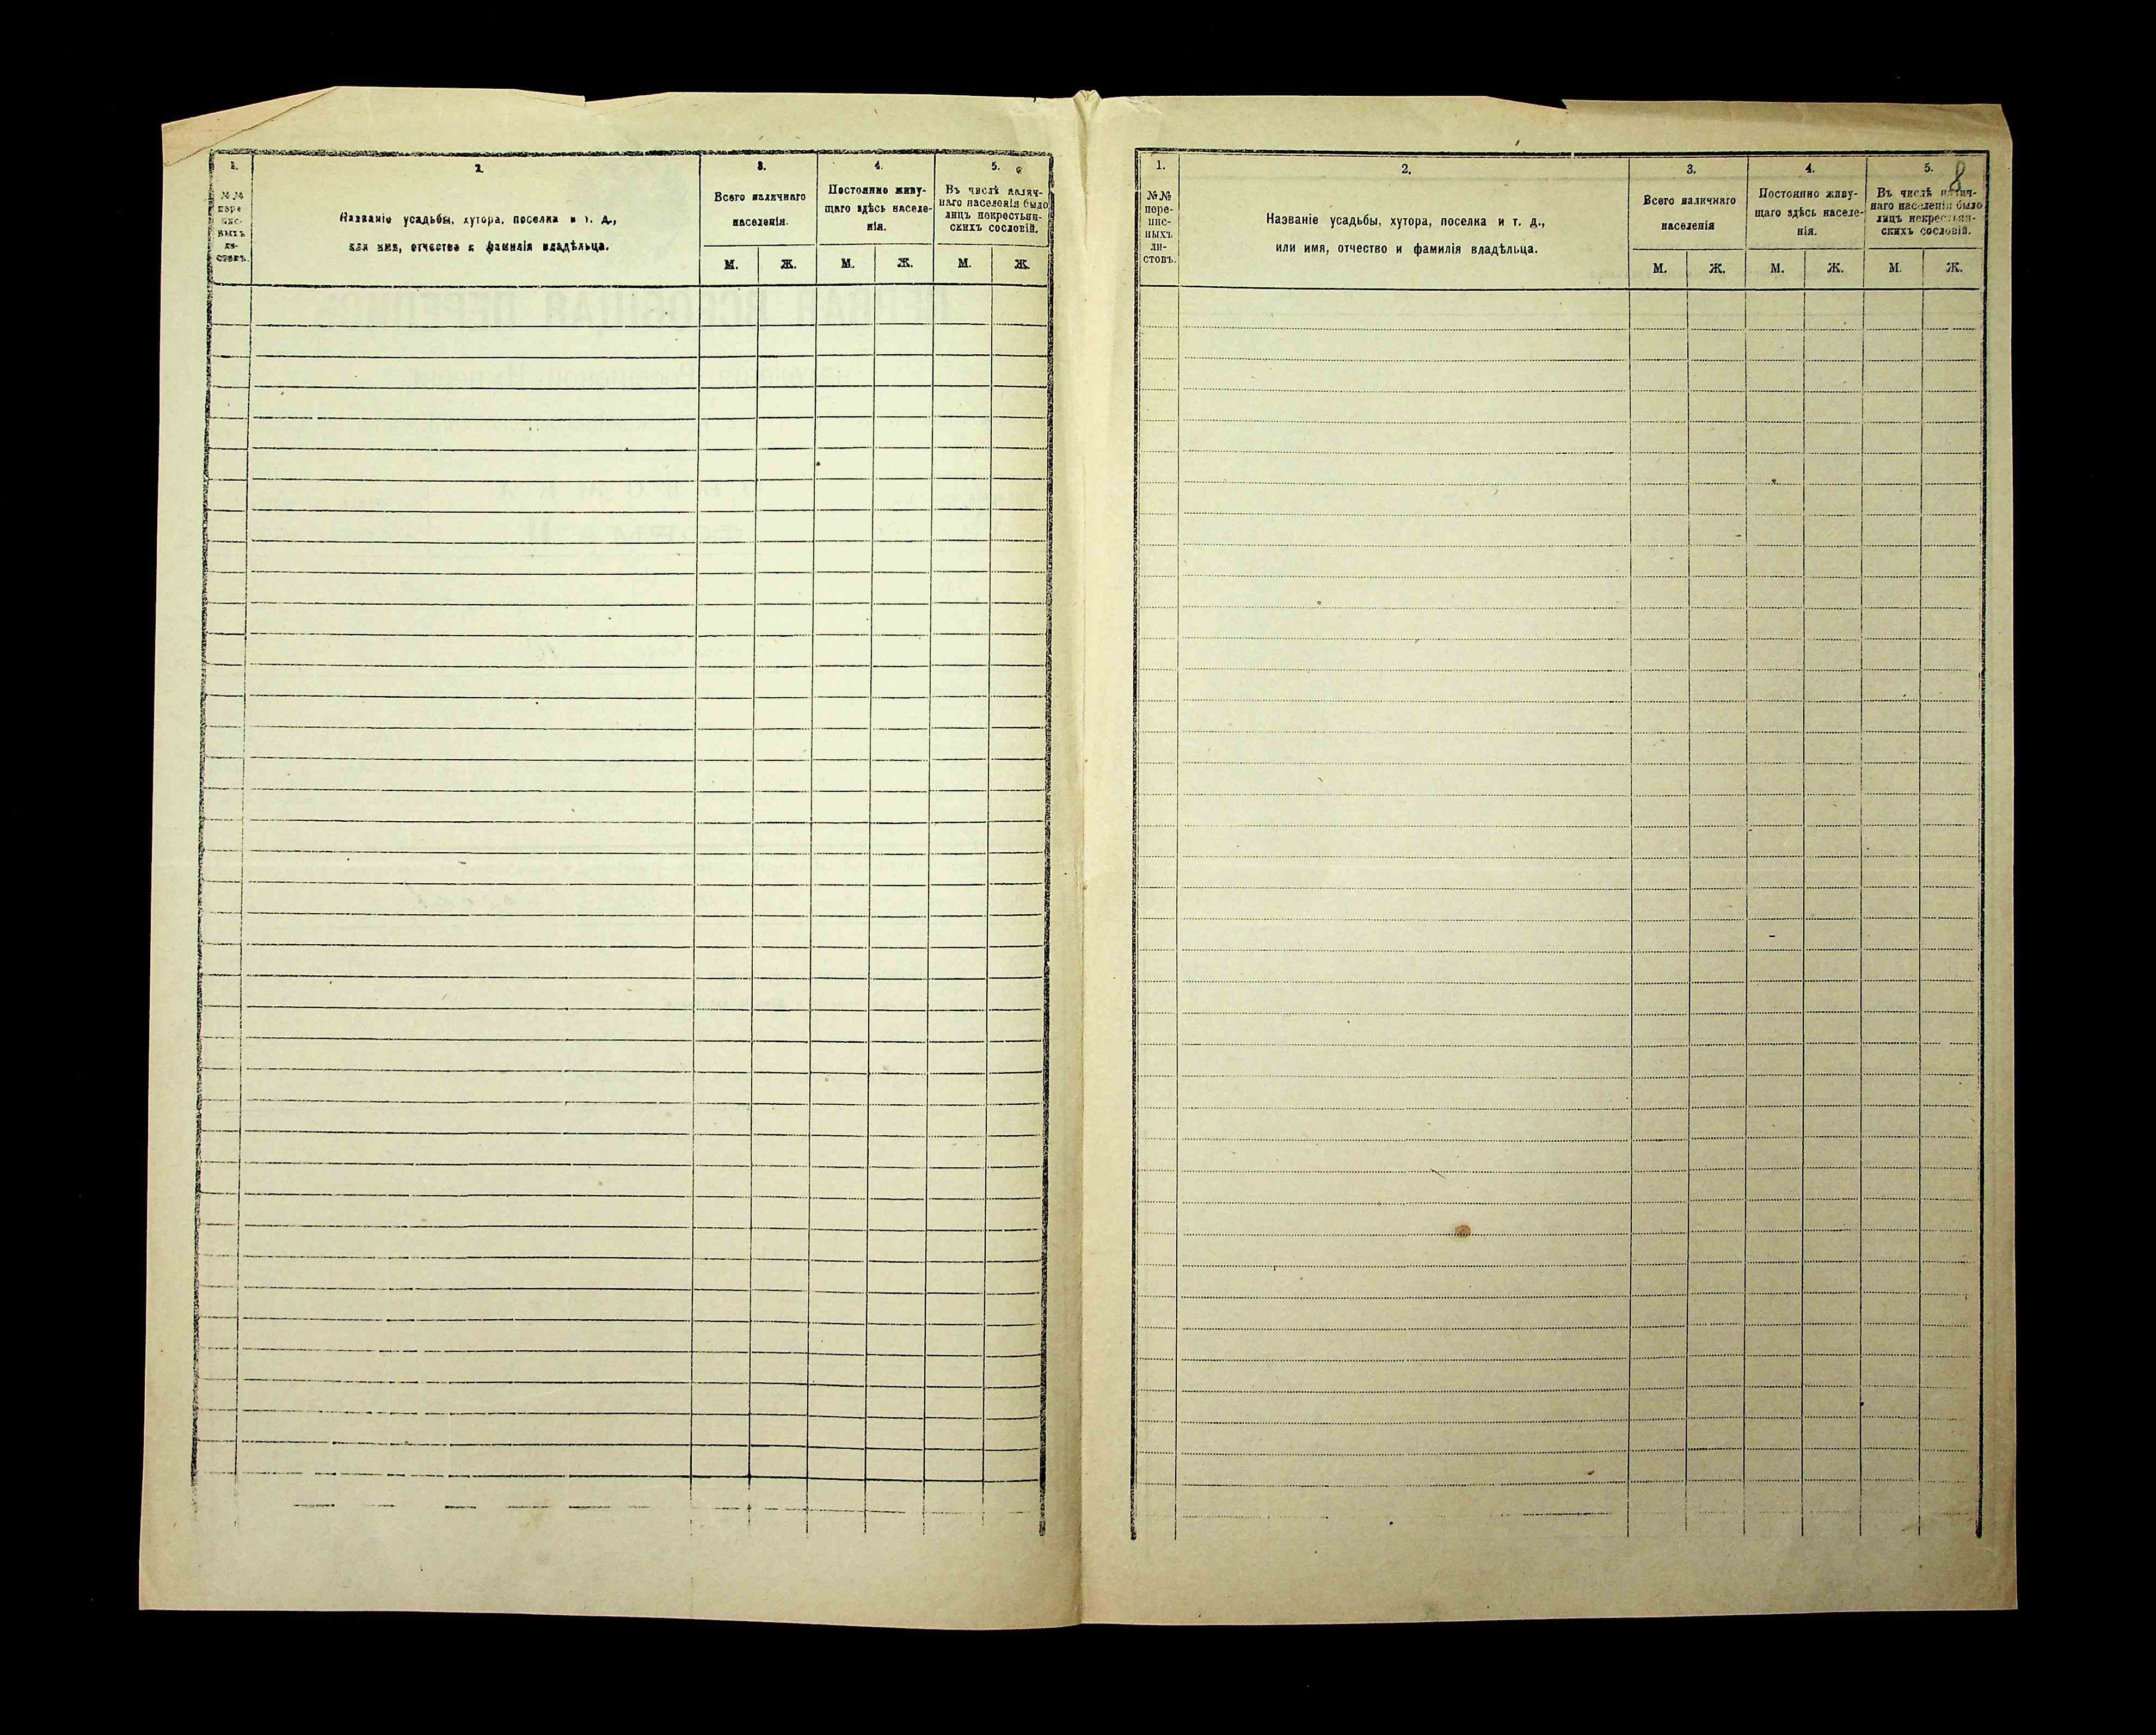 1.
№№
пере-
пис-
ныхъ
ли-
стовъ.
2.
Названіе усадьбы, хутора, поселка и т. д.,
или имя, отчество и фамилія владѣльца.
3.
Всего наличнаго
населенія.
М. Ж.
4.
Постоянно живу-
щаго здѣсь населе-
нія.
М. Ж.
5.
Въ числѣ налич-
наго населенія было
лицъ некрестьян-
скихъ сословій.
М. Ж.
8
1.
№№
пере-
пис-
ныхъ
ли-
стовъ.
2.
Названіе усадьбы, хутора, поселка и т. д.,
или имя, отчество и фамилія владѣльца.
3.
Всего наличнаго
населенія
М. Ж.
4.
Постоянно живу-
щаго здѣсь населе-
нія.
М. Ж.
5.
Въ числѣ налич-
наго населенія было
лицъ некрестьян-
скихъ сословій.
М. Ж.